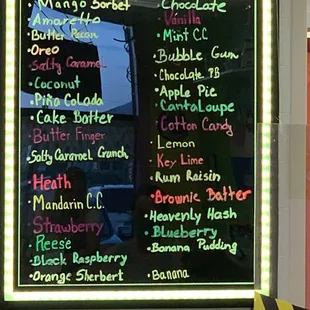 Mango Sorbet
Amaretto
Butter Pecan
Oreo
Salty Caramel
Coconut
Piña Colada
Cake Batter
Butter Finger
Salty Caramel Crunch
Heath
Mandarin C.C.
Strawberry
Reese
Black Raspberry
Orange Sherbert
Chocolate
Vanilla
Mint C.C
Bubble Gum
Chocolate PB
Apple Pie
Cantaloupe
Cotton Candy
Lemon
Key Lime
Rum Raisin
Brownie Batter
Heavenly Hash
Blueberry
Banana Pudding
Banana